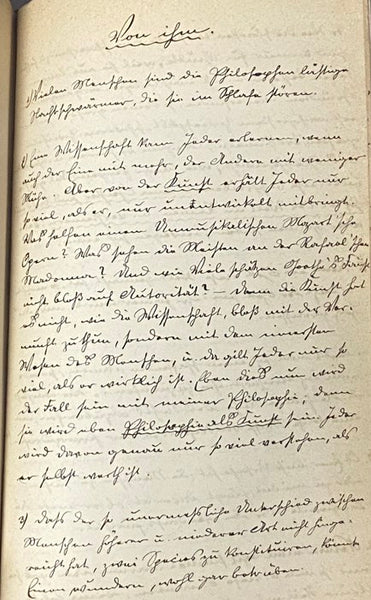 Von ihm.
Vielen Menschen sind die Philosophen lästige
Nachtschwärmer, die sie im Schlafe stören.
1) Eine Wissenschaft kann Jeder erlernen, wenn
auch der Eine mit mehr, der Andere mit weniger
Mühe. Aber von der Kunst erhält Jeder nur
so viel, als er, nur unentwickelt mitbringt.
Was helfen einem Unmusikalischen Mozart'sche
Opern? Was sehen die Meisten an der Raphael'schen
Madonna? Und wie Viele schätzen Goethe's Faust
nicht bloß auf Autorität? – Denn die Kunst hat
es nicht, wie die Wissenschaft, bloß mit der Ver-
nunft zu thun, sondern mit dem innersten
Wesen des Menschen, u. da gilt Jeder nur so
viel, als er wirklich ist. Eben dies nun wird
der Fall sein mit meiner Philosophie, denn
sie wird eben Philosophie als Kunst sein. Jeder
wird davon genau nur so viel verstehen, als
er selbst werth ist.
2) Daß der so unermessliche Unterschied zwischen
Menschen höherer u. niederer Art nicht hinge-
reicht hat, zwei Species zu konstituiren, könnte
Einen wundern, wohl gar betrüben.